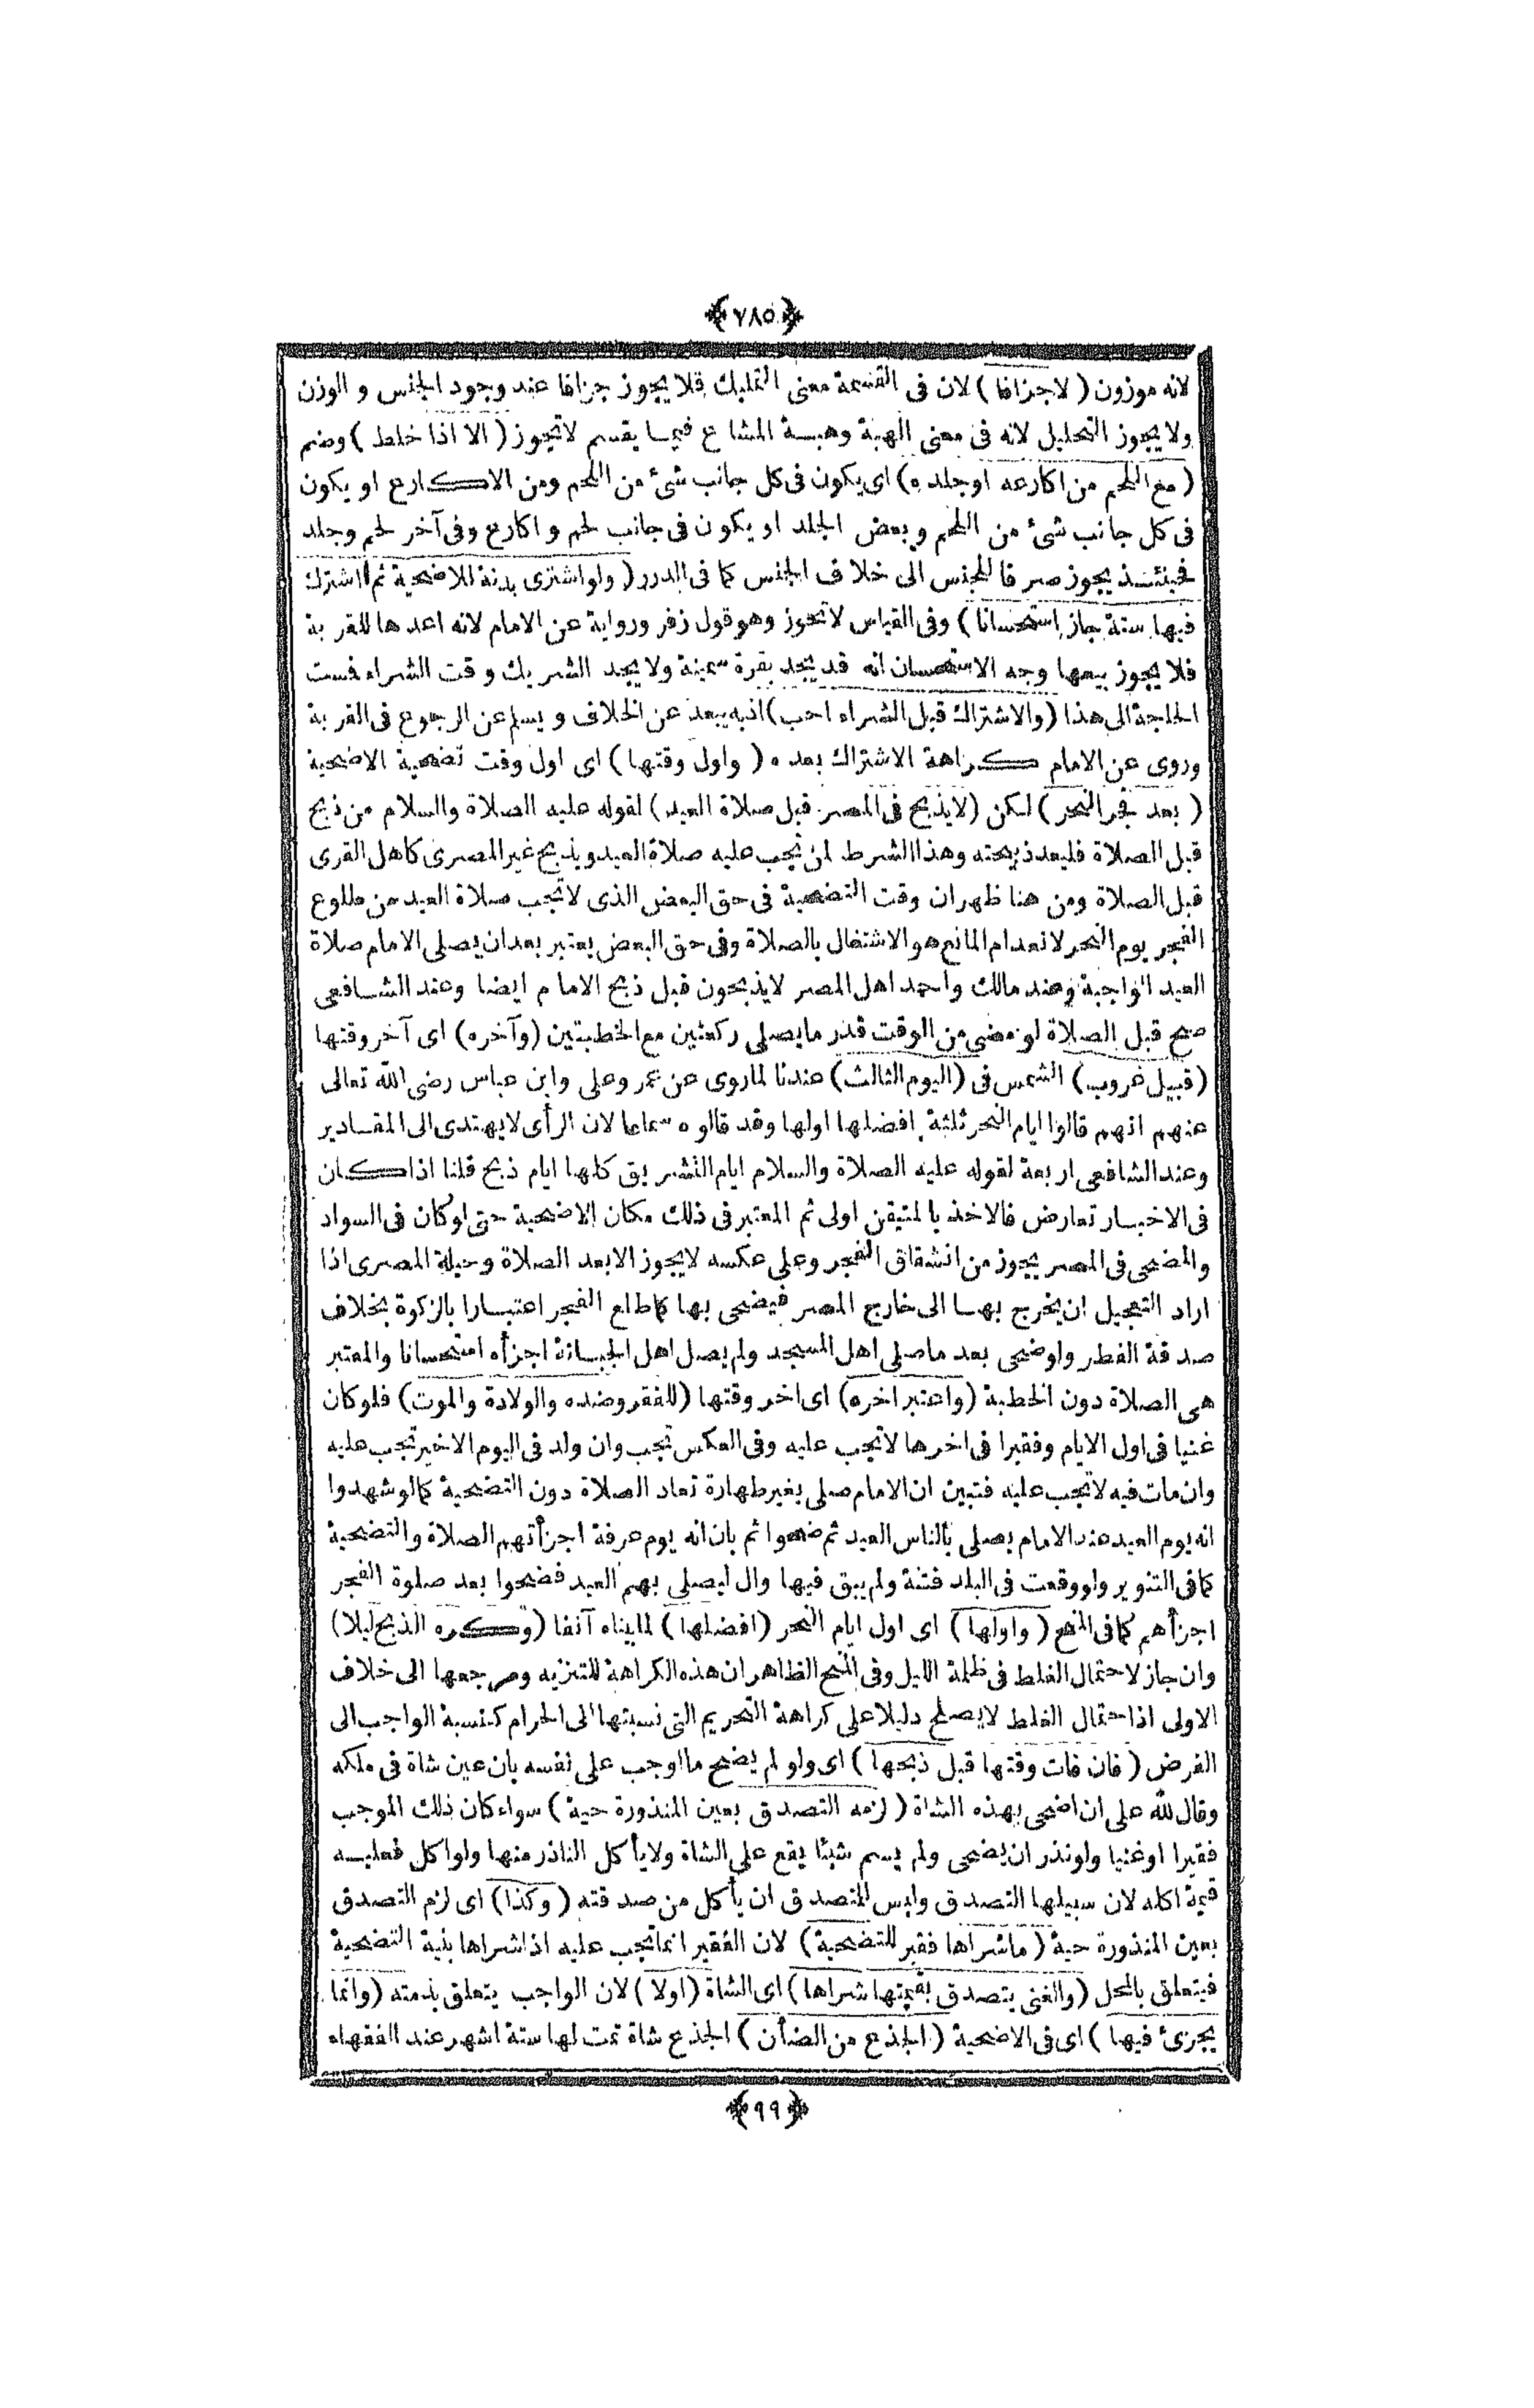 ﴿٧٨٥﴾
لانه موزون ( لاجزافا ) لان فى القسمة معنى التمليك فلا يجوز جزافا عند وجود الجنس و الوزن
ولا يجوز التحليل لانه فى معنى الهبة وهبة المشاع فيما يقسم لاتجوز ( الا اذا خلط ) وضم
( مع اللحم من اكارعه اوجلده ) اى يكون فى كل جانب شئ من اللحم ومن الاكارع او يكون
فى كل جانب شئ من اللحم وبعض الجلد او يكون فى جانب لحم و اكارع وفى آخر لحم وجلد
فحينئذ يجوز صرفا للجنس الى خلاف الجنس كما فى الدرر ( ولو اشترى بدنة للاضحية ثم اشترك
فيها ستة جاز استحسانا ) وفى القياس لاتجوز وهو قول زفر ورواية عن الامام لانه اعدها للقربة
فلا يجوز بيعها وجه الاستحسان انه قد يجد بقرة سمينة ولا يجد الشريك وقت الشراء فست
الحاجة الى هذا ( والاشتراك قبل الشراء احب ) اذ به يبعد عن الخلاف و يسلم عن الرجوع فى القربة
وروى عن الامام كراهة الاشتراك بعده ( واول وقتها ) اى اول وقت تضحية الاضحية
( بعد فجر النحر ) لكن ( لايذبح فى المصر قبل صلاة العيد ) لقوله عليه الصلاة والسلام من ذبح
قبل الصلاة فليعد ذبيحته وهذا الشرط لمن تجب عليه صلاة العيد ويذبح غير المصرى كاهل القرى
قبل الصلاة ومن هنا ظهر ان وقت التضحية فى حق البعض الذى لاتجب صلاة العيد من طلوع
الفجر يوم النحر لانعدام المانع هو الاشتغال بالصلاة وفى حق البعض يعتبر بعد ان يصلى الامام صلاة
العيد الواجبة وعند مالك واحمد اهل المصر لايذبحون قبل ذبح الامام ايضا وعند الشافعى
صح قبل الصلاة لو مضى من الوقت قدر مايصلى ركعتين مع الخطبتين ( وآخره ) اى آخر وقتها
( قبيل غروب ) الشمس فى ( اليوم الثالث ) عندنا لماروى عن عمر وعلى وابن عباس رضى الله تعالى
عنهم انهم قالوا ايام النحر ثلثة افضلها اولها وقد قالوه سماعا لان الرأى لايهتدى الى المقادير
وعند الشافعى اربعة لقوله عليه الصلاة والسلام ايام التشريق كلها ايام ذبح قلنا اذاكان
فى الاخبار تعارض فالاخذ بالمتيقن اولى ثم المعتبر فى ذلك مكان الاضحية حتى لوكان فى السواد
والمضحى فى المصر يجوز من انشقاق الفجر وعلى عكسه لايجوز الابعد الصلاة وحيلة المصرى اذا
اراد التعجيل ان يخرج بها الى خارج المصر فيضحى بها كما طلع الفجر اعتبارا بالزكوة بخلاف
صدقة الفطر ولوضحى بعد ماصلى اهل المسجد ولم يصل اهل الجبانة اجزأه استحسانا والمعتبر
هى الصلاة دون الخطبة ( واعتبر اخره ) اى اخر وقتها ( للفقر وضده والولادة والموت ) فلوكان
غنيا فى اول الايام وفقيرا فى اخرها لاتجب عليه وفى العكس تجب وان ولد فى اليوم الاخير تجب عليه
وان مات فيه لاتجب عليه فتبين ان الامام صلى بغير طهارة تعاد الصلاة دون التضحية كمالو شهدوا
انه يوم العيد عند الامام يصلى بالناس العيد ثم ضحوا ثم بان انه يوم عرفة اجزأتهم الصلاة والتضحية
كما فى التنوير ولو وقعت فى البلد فتنة ولم يبق فيها وال ليصلى بهم العيد فضحوا بعد صلوة الفجر
اجزأهم كمافى المنح ( واولها ) اى اول ايام النحر ( افضلها ) لمابيناه آنفا ( وكره الذبح ليلا )
وان جاز لاحتمال الغلط فى ظلمة الليل وفى المنح الظاهر ان هذه الكراهة للتنزيه ومرجعها الى خلاف
الاولى اذاحتمال الغلط لايصلح دليلا على كراهة التحريم التى نسبتها الى الحرام كنسبة الواجب الى
الفرض ( فان فات وقتها قبل ذبحها ) اى ولو لم يضح مااوجب على نفسه بان عين شاة فى ملكه
وقال لله على ان اضحى بهذه الشاة ( لزمه التصدق بعين المنذورة حية ) سواء كان ذلك الموجب
فقيرا اوغنيا ولو نذر ان يضحى ولم يسم شيئا يقع على الشاة ولايأكل الناذر منها ولو اكل فعليه
قيمة اكله لان سبيلها التصدق وليس للمتصدق ان يأكل من صدقته ( وكذا ) اى لزم التصدق
بعين المنذورة حية ( ماشراها فقير للتضحية ) لان الفقير انما تجب عليه اذاشراها بنية التضحية
فيتعلق بالمحل ( والغنى يتصدق بقيمتها شراها ) اى الشاة ( اولا ) لان الواجب يتعلق بذمته ( وانما
يجزئ فيها ) اى فى الاضحية ( الجذع من الضأن ) الجذع شاة تمت لها ستة اشهر عند الفقهاء
﴿٩٩﴾